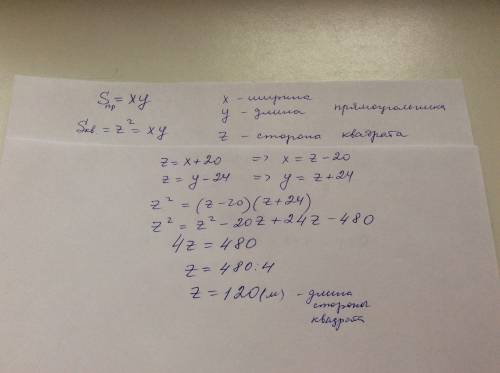 Sпр = xy x – ширина
y – длина прямоугольника
Sкв = z² = xy z – сторона квадрата
z = x + 20 => x = z – 20
z = y – 24 => y = z + 24
z² = (z – 20)(z + 24)
z² = z² – 20z + 24z – 480
4z = 480
z = 480 : 4
z = 120 (м) – длина
стороны
квадрата